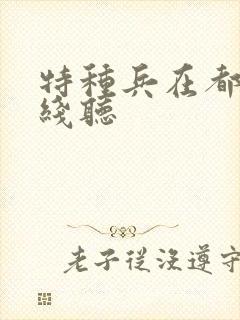 特種兵在都
綫聽
老子從沒遵守